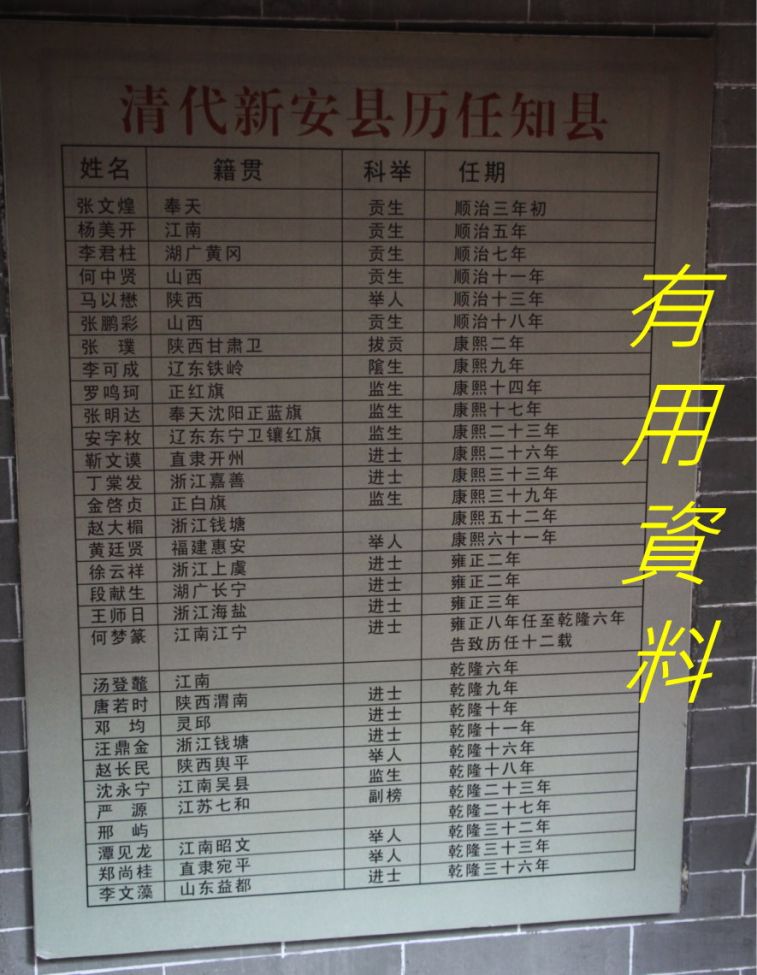 清代新安县历任知县
姓名 籍贯 科举 任期
张文煌 奉天 贡生 顺治三年初
杨美开 江南 贡生 顺治五年
李君柱 湖广黄冈 贡生 顺治七年
何中贤 山西 贡生 顺治十一年
马以懋 陕西 举人 顺治十三年
张鹏彩 山西 贡生 顺治十八年
张璞 陕西甘肃卫 拔贡 康熙二年
李可成 辽东铁岭 隂生 康熙九年
罗鸣珂 正红旗 监生 康熙十四年
张明达 奉天沈阳正蓝旗 监生 康熙十七年
安字枚 辽东东宁卫镶红旗 监生 康熙二十三年
靳文谟 直隶开州 进士 康熙二十六年
丁棠发 浙江嘉善 进士 康熙三十三年
金啓贞 正白旗 监生 康熙三十九年
赵大楣 浙江钱塘 康熙五十二年
黄廷贤 福建惠安 举人 康熙六十一年
徐云祥 浙江上虞 进士 雍正二年
段献生 湖广长宁 进士 雍正二年
王师日 浙江海盐 进士 雍正三年
何梦篆 江南江宁 进士 雍正八年任至乾隆六年
告致历任十二载
汤登鼇 江南 乾隆六年
唐若时 陕西渭南 进士 乾隆九年
邓均 灵邱 进士 乾隆十年
汪鼎金 浙江钱塘 进士 乾隆十一年
赵长民 陕西舆平 举人 乾隆十六年
沈永宁 江南吴县 监生 乾隆十八年
严源 江苏七和 副榜 乾隆二十三年
邢屿 乾隆二十七年
潭见龙 江南昭文 举人 乾隆三十二年
郑尚桂 直隶宛平 举人 乾隆三十三年
李文藻 山东益都 进士 乾隆三十六年
有用資料